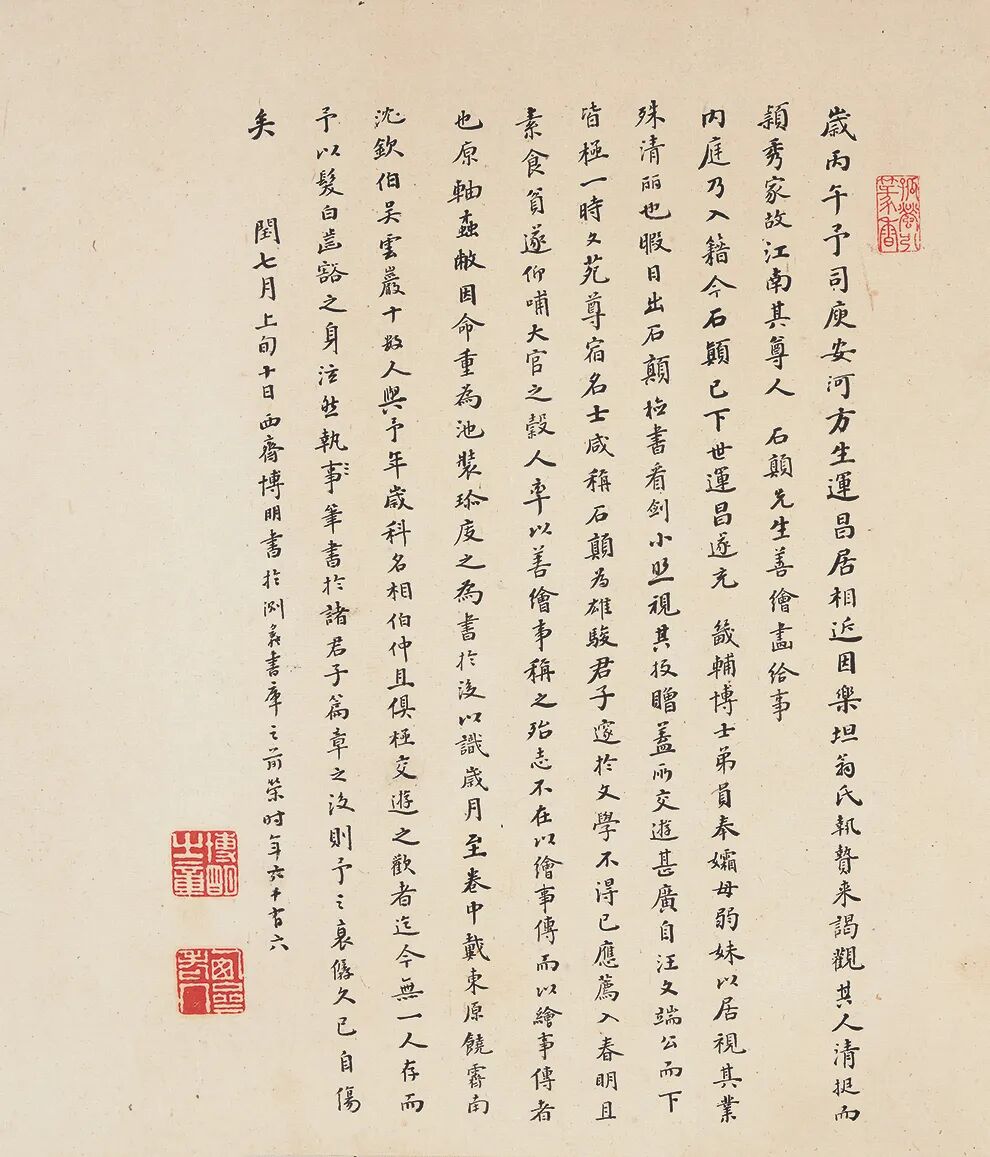 歲丙午予司庾安河方生運昌居相近因樂坦翁氏執贄来謁觀其人清挺而
穎秀家故江南其尊人 石顛先生善繪畫給事
内庭乃入籍今石顛已下世運昌遂充 畿輔博士弟員奉孀母弱妹以居視其業
殊清丽也暇日出石顛檢書看剑小照視其投贈蓋所交遊甚廣自汪文端公而下
皆極一時文苑尊宿名士咸稱石顛为雄駿君子邃於文學不得已應薦入春明且
素食貧遂仰哺大官之穀人率以善繪事稱之殆志不在以繪事傳而以繪事傳者
也原軸蠹敝因命重為池裝珎度之為書於後以識歲月至卷中戴東原饒霽南
沈欽伯吴雲巖十數人與予年歲科名相伯仲且俱極交遊之歡者迄今無一人存而
予以髮白齒豁之身泫然執事筆書於諸君子篇章之後則予之衰僝久已自傷
矣 閏七月上旬十日西齋博明書於測彖書庫之前榮时年六十有六
博明之章